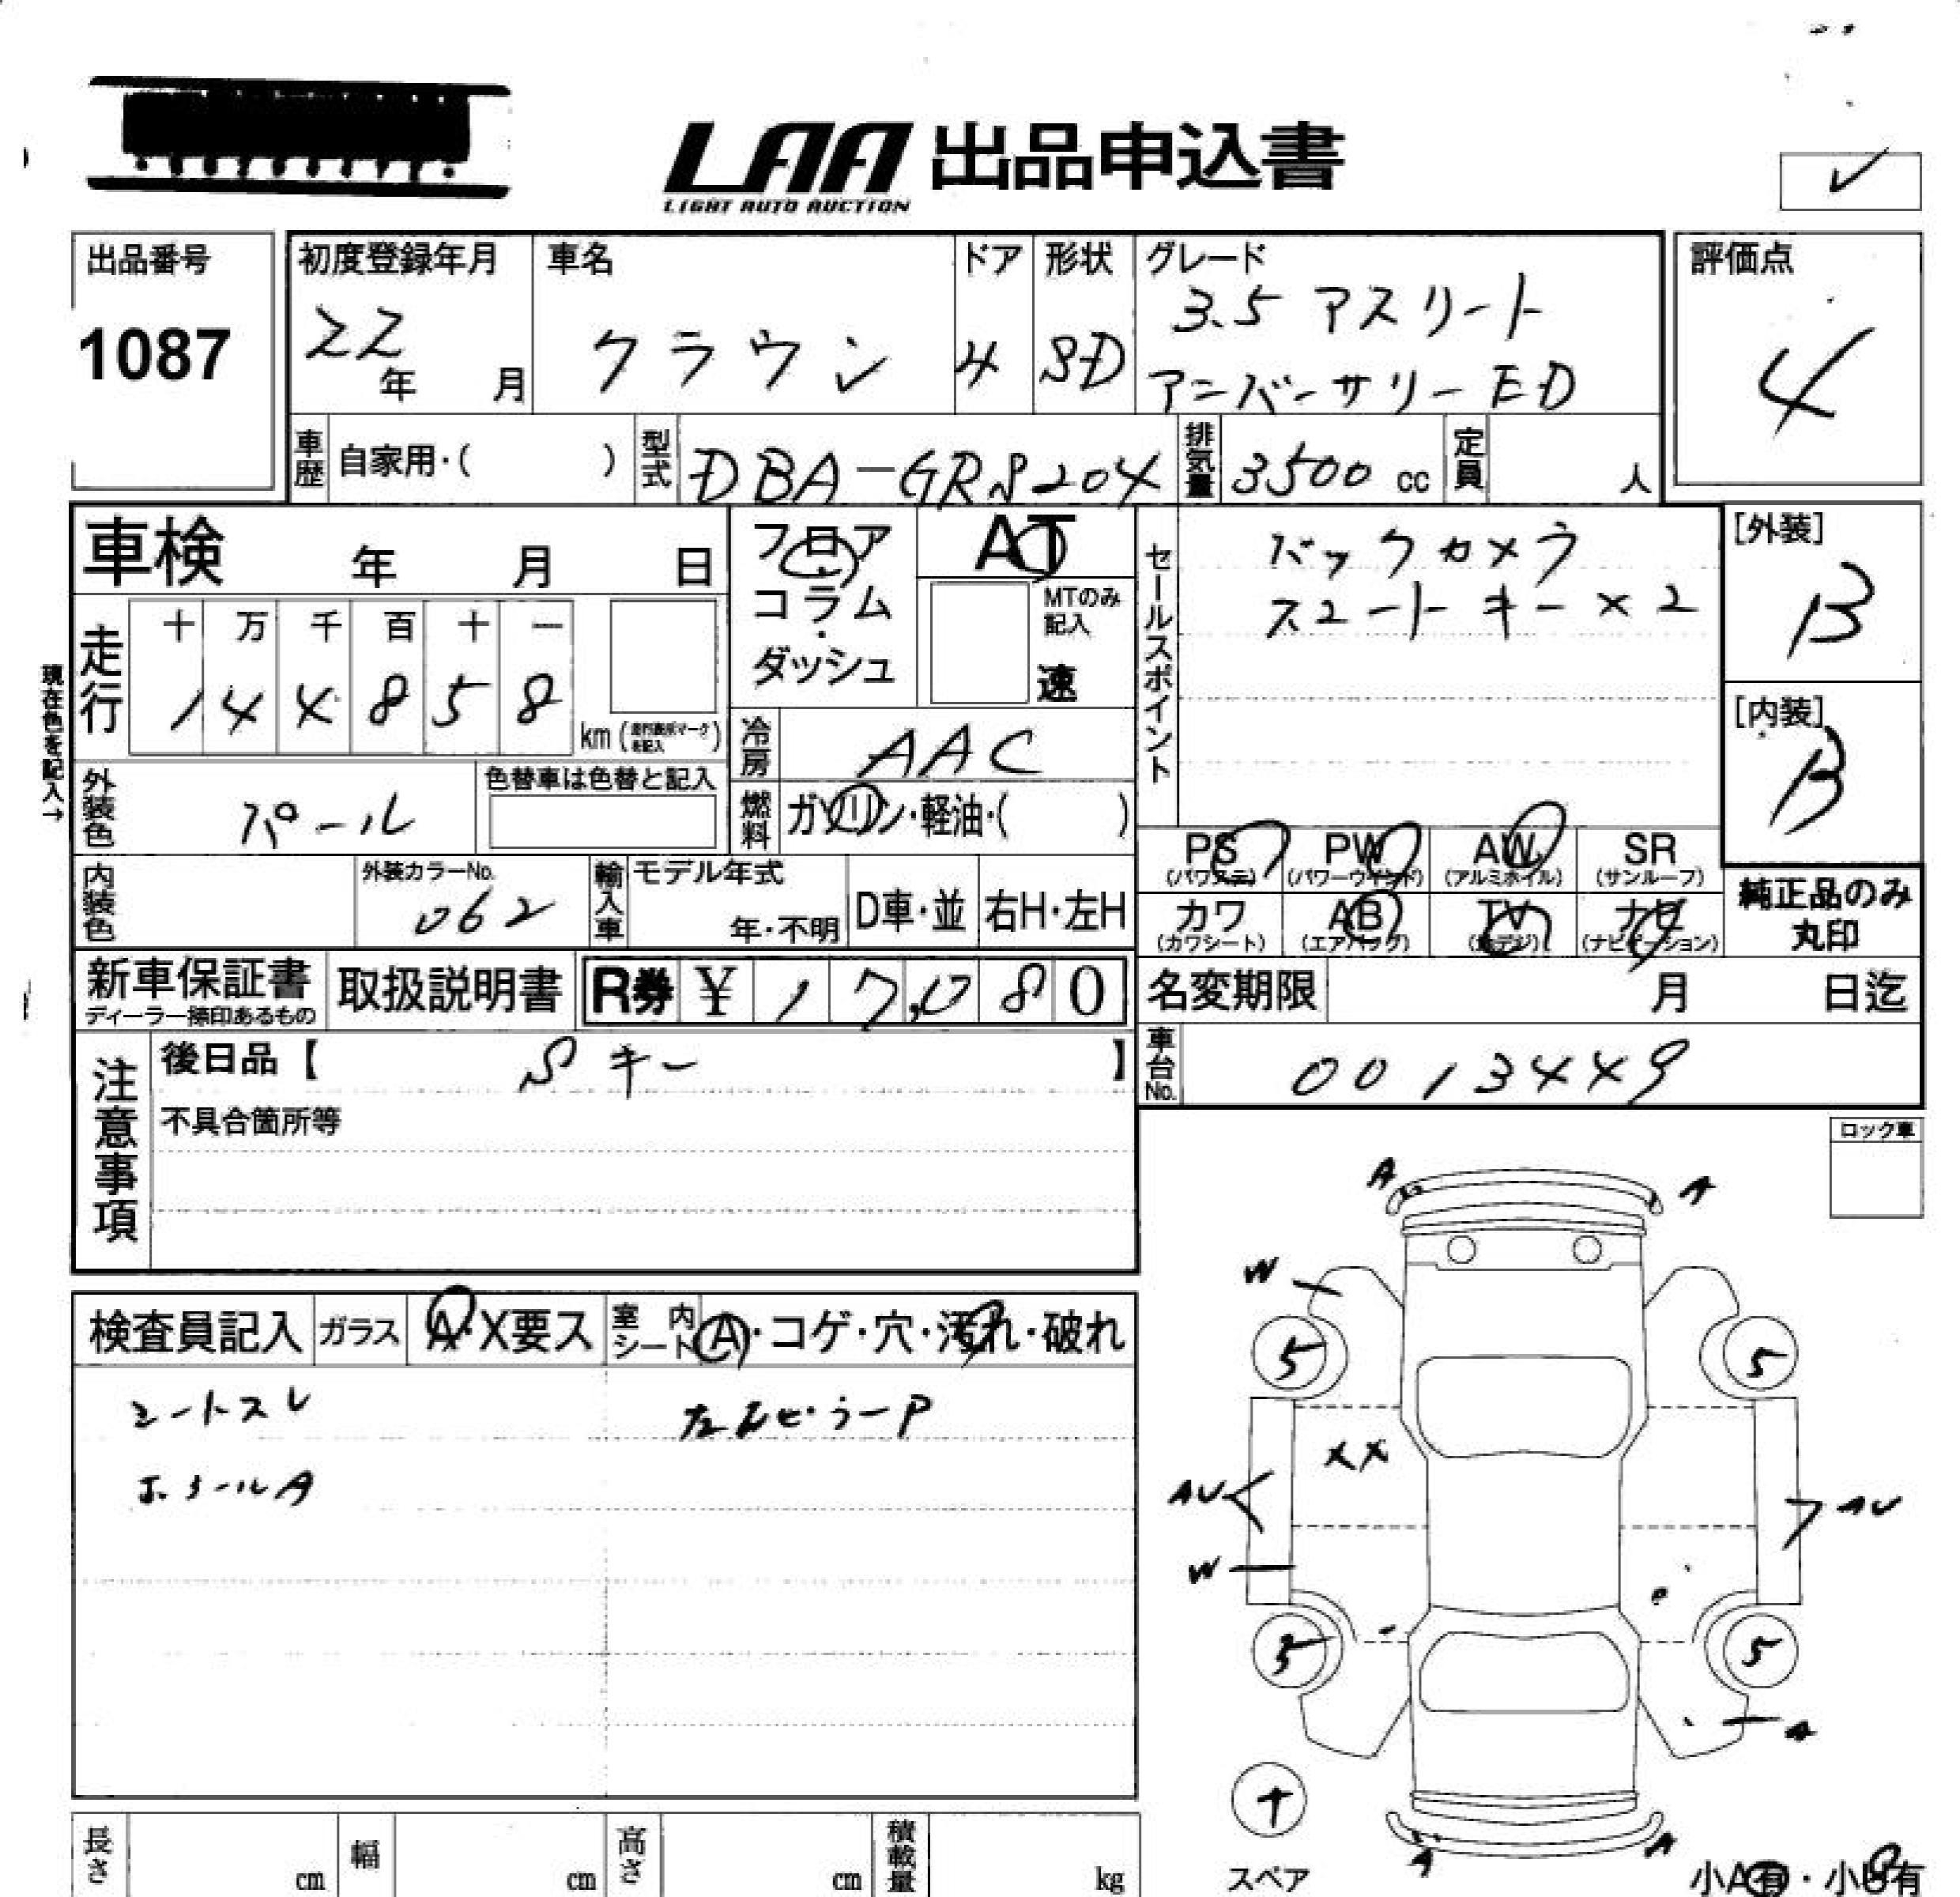 LAA 出品申込書
LIGHT AUTO AUCTION
出品番号
1087
初度登録年月
22年 月
車名
クラウン
ドア
4
形状
SD
グレード
3.5 アスリート
アニバーサリーED
評価点
4
車歴 自家用・( )
型式 DBA-GRS204
排気量 3500 cc
定員 人
車検 年 月 日
フロア・コラム・ダッシュ
AT
MTのみ記入
速
セールスポイント
バックカメラ
スマートキー×2
[外装]
B
[内装]
B
現在色を記入→
走行
十 万 千 百 十 一
1 4 4 8 5 8
km
冷房 AAC
外装色 パール
色替車は色替と記入
燃料 ガソリン・軽油・( )
PS (パワステ)
PW (パワーウインド)
AW (アルミホイル)
SR (サンルーフ)
カワ (カワシート)
AB (エアバッグ)
TV (地デジ)
ナビ (ナビゲーション)
純正品のみ丸印
内装色
外装カラーNo.
062
輸入車
モデル年式
年・不明
D車・並
右H・左H
新車保証書
ディーラー捺印あるもの
取扱説明書
R券 ¥ 17,080
名変期限 月 日迄
車台No. 0013449
注意事項
後日品【 Sキー 】
不具合箇所等
ロック車
検査員記入
ガラス A・X要ス
室内シート A・コゲ・穴・汚れ・破れ
シートスレ
ホイールA
A A
W
5 5
XX
AU AU
W
5
A
A A
スペア
小A有・小U有
長さ cm
幅 cm
高さ cm
積載量 kg